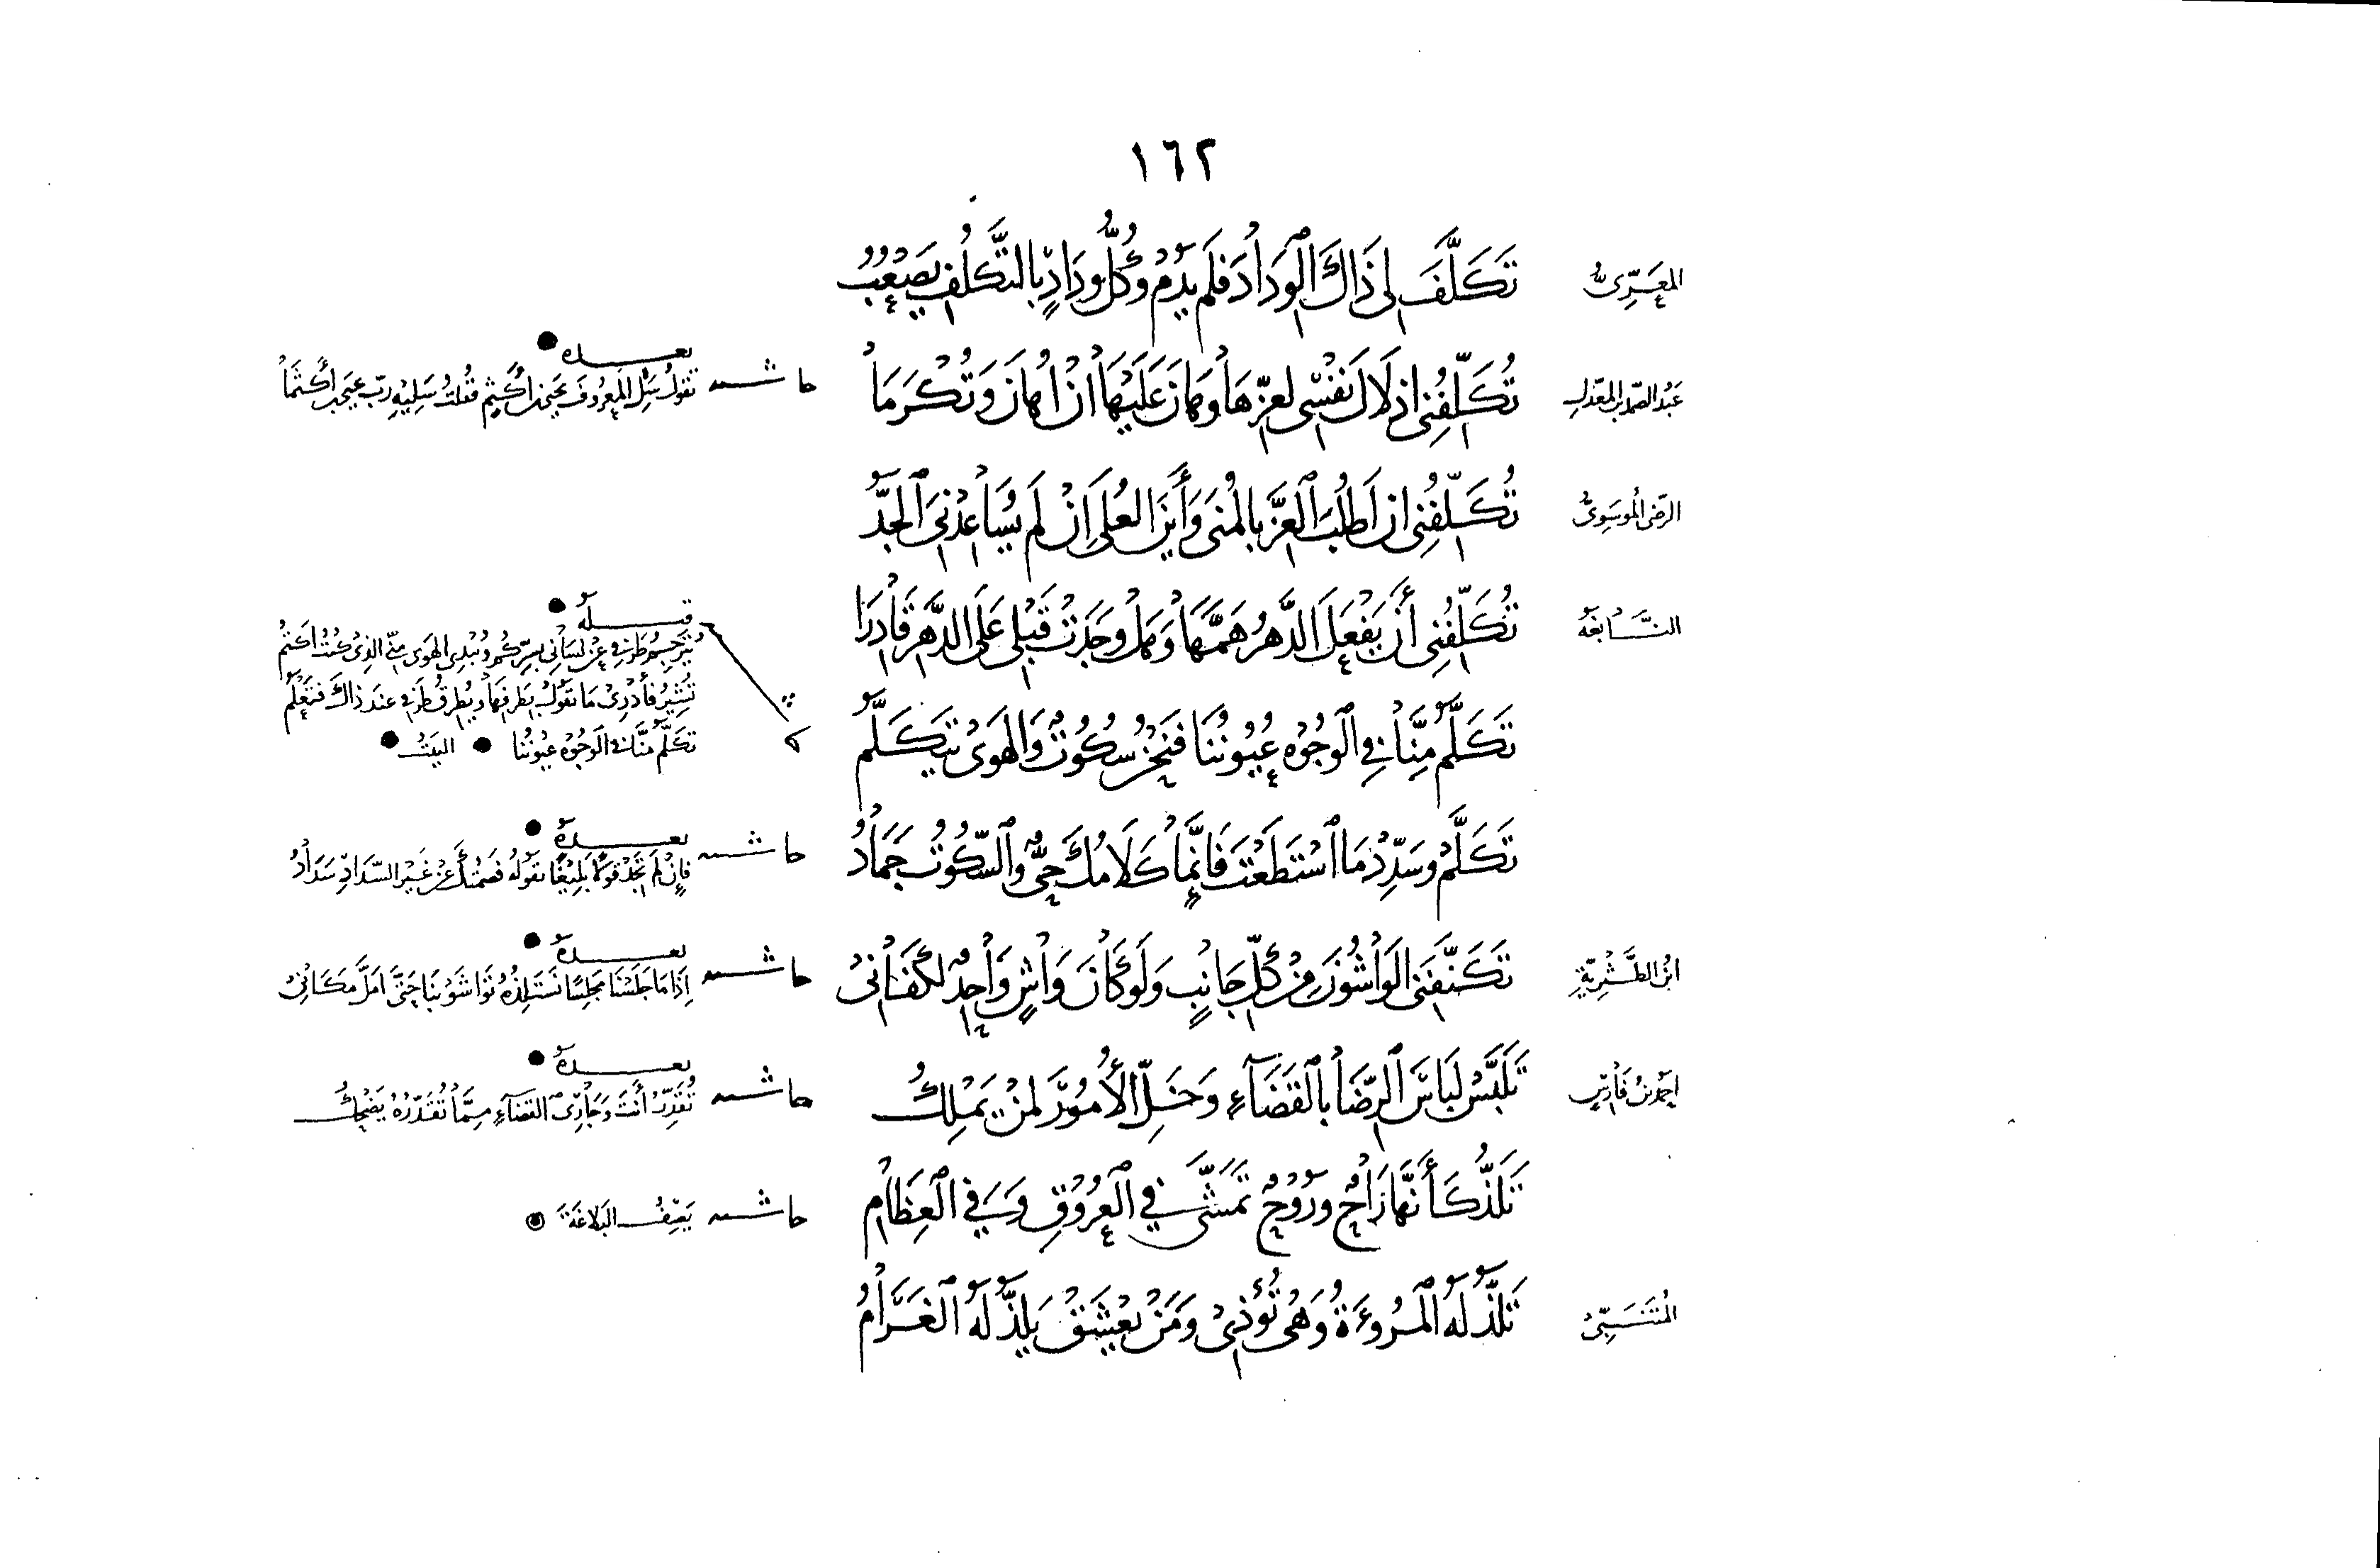 ١٦٢
المعَرِّىُّ تَكَلَّفَ لِى ذَاكَ الوَدَادَ فَلَم يَدُمْ وَكُلُّ وِدَادٍ بِالتَّكَلُّفِ يَصْعُبُ
عَبْدُ الصَّمَدِ بنُ المعَذَّلِ تُكَلِّفُنِى اذْلَالَ نَفْسِى لِعِزِّهَا وَهَانَ عَلَيْهَا أنْ أُهَانَ وَتُكْرَمَا
حاشـــه بعـــده
تَقُولُ سَلِ المَعرُوفَ يَحْيَى بنَ أكْثَمٍ فقُلتُ سَلِيهِ رَبَّ يَحْيَى بنِ اكْثَمَا
الرّضى المُوسَوِىُّ تُكَلِّفُنِى ان اَطلُبَ العِزَّ بالمُنَى وَأَيْنَ العُلَى اِنْ لَم يُسَاعِدْنِىَ الجَدُّ
النَّابغَهُ تُكَلِّفُنِى أَنْ يَفْعَلَ الدَّهرُ هَمَّهَا وَهَلْ وَجَدَتْ قَبْلِى عَلَى الدَّهرِ قَادِرَا
تَكَلَّمُ مِنَّا فِى الوُجُوْهِ عُيُونُنَا فَنَحْنُ سُكُوْتٌ وَالهَوَىْ يَتَكَلَّمُ
قبـــلهُ
يُتَرجِمُ طَرفِى عَنْ لِسَانِى بِسِرِّكُم وَيُبْدِى الهَوَى مِنِّى الذِىْ كُنْتُ اَكْتُمُ
تُشِيرُ فأَدْرِىْ مَا تَقُولُ بِطَرفِهَا وَيُطرِقُ طَرفِى عندَ ذاكَ فَتَعْلَمُ
تَكَلَّمُ مِنَّا فِى الوُجُوْهِ عيُونُنَا البَيتُ
تَكَلَّمْ وَسَدِّدْ مَا اسْتَطَعْتَ فَاِنَّمَا كَلَامُكَ حَىٌّ وَالسُّكُوتُ جَمَادُ
حاشـــه بعـــدهُ
فَاِنْ لَم تَجِدْ قَولًا بَلِيْغًا تقُولُهُ فصَمْتُكَ عَنْ غَيْرِ السَّدَادِ سَدَادُ
ابْنُ الطَّثْرِيَّةِ تَكَنَّفَنِى الوَاشُونَ مِنْ كُلِّ جَانِبٍ وَلَو كَانَ وَاشٍ وَاحِدٌ لَكَفَانِىْ
حاشـــه بعـــدهُ
اِذَا مَا جَلَسْنَا مَجلِسًا نَسْتَلِذُّهُ تَوَاشَوْ بنَا حَتَّى اَمَلَّ مَكَانِىْ
احمَدُ بنُ فَارِسٍ تَلَبَّسْ لِبَاسَ الرِّضَا بالقَضَآءِ وَخَلِّ الأُمُورَ لِمَنْ يَمْلِكُ
حاشـــه بعـــدهُ
تُقَدِّرُ أَنْتَ وَجَارِى القَضَآءِ مِمَّا تُقَدِّرُهُ يَضْحَكُ
تَلَذُّ كَأَنَّهَا رَاحٌ وَرُوْحٌ تَمَشَّى فِى العُرُوقِ وَفِى العِظَامِ
حاشـــه يَصِفُ البَلَاغَةَ
المُتَنَبِّىْ تَلَذُّ لَهُ المُرُوءَةُ وَهْىَ تُؤْذِىْ وَمَنْ يَعْشَقْ يَلَذُّ لَهُ الغَرَامُ